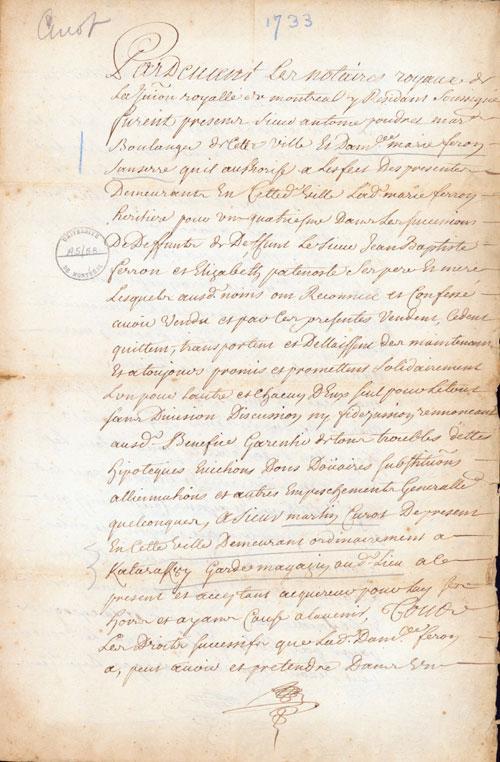 Curot
1733
Pardevant Les notaires royaux de
La Jurion royalle de montreal y Residant Soussignés
furent presens Sieur antoine poudret mard
Boulanger de Cette ville Et Damlle marie feron
Sa quil authorise a Leffet Des presentes
Demeurants En Cette d. ville Lad. marie ferron
heritiere pour un quatriesme Dans Les successions
De Deffunts de Deffunt Le Sieur Jean Baptiste
ferron et Elizabeth patenostre Ses pere Et mere
Lesquels ausd. noms ont Reconnu et Confessé
avoir Vendu et par Ces presentes Vendent, Cedent
quittent, transportent et Dellaissent des maintenant
Et a toujours promis et promettent Solidairement
Lun pour Lautre et Chacun D'Eux Seul pour Le tout
Sans Division Discussion ny fidejussion renonceant
ausd. Benefice Garentir de tous troubles dettes
hipoteques Evictions Dons Doüaires Substitutions
allienations et autres Empeschements Generallemt
quelconques, a Sieur martin Curot De present
En Cette Ville Demeurant ordinairement a
Garde magazin aud. Lieu a ce
present et acceptant acquereur pour Luy Ses
hoirs et ayans Cause a lavenir, Tous
Les Droits successifs que Lad. Damlle feron
a, peut avoir et pretendre Dans
UNIVERSITÉ
A5/58
DE MONTRÉAL